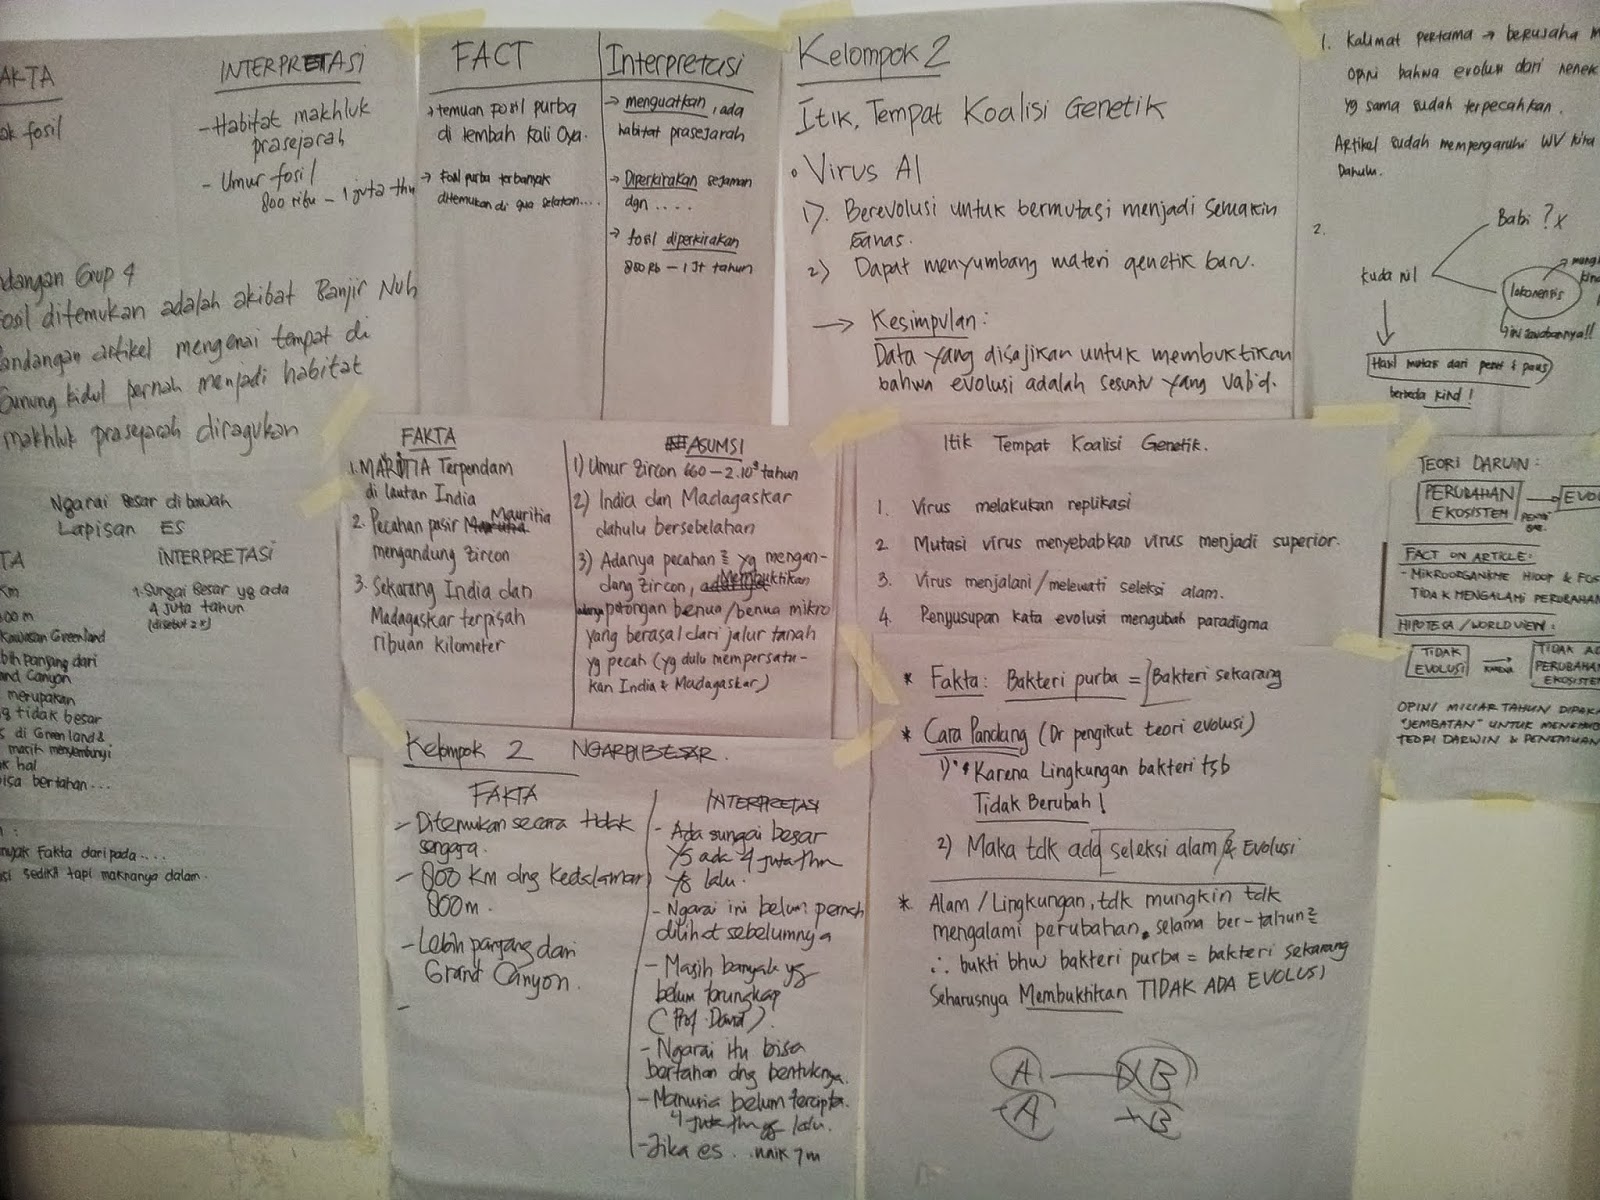 AKTA
INTERPRETASI
ak fosil
- Habitat makhluk
prasejarah
- Umur fosil
800 ribu - 1 juta thn
ndangan Grup 4
fosil ditemukan adalah akibat Banjir Nuh
andangan artikel mengenai tempat di
Gunung kidul pernah menjadi habitat
makhluk prasejarah diragukan
FACT
Interpretasi
→ temuan fosil purba
di lembah kali Oya.
→ Fosil purba terbanyak
ditemukan di gua selatan....
→ menguatkan, ada
habitat prasejarah
→ Diperkirakan sejaman
dgn ....
→ fosil diperkirakan
800 Rb - 1 Jt tahun
Kelompok 2
Itik, Tempat Koalisi Genetik
• Virus AI
1). Berevolusi untuk bermutasi menjadi semakin
Ganas.
2) Dapat menyumbang materi genetik baru.
→ Kesimpulan:
Data yang disajikan untuk membuktikan
bahwa evolusi adalah sesuatu yang valid.
1. Kalimat pertama → berusaha m
opini bahwa evolusi dari nenek
yg sama sudah terpecahkan.
Artikel sudah mempengaruhi WV kita
Dahulu.
2.
Babi ? x
kuda nil
ini jawabannya!!
Hasil mutasi dari & paus
berbeda kind!
Ngarai Besar di bawah
Lapisan ES
TA
INTERPRETASI
Km
00 m
Kawasan Greenland
bih panjang dari
and Canyon
merupakan
g tidak besar
s di Greenland &
masih menyembunyi
k hal
bisa bertahan...
1. Sungai Besar yg ada
4 juta tahun
(disebut 2x)
nyak Fakta daripada....
si sedikit tapi maknanya dalam.
FAKTA
1. MARITIA Terpendam
di lautan India
2. Pecahan pasir Mauritia
mengandung zircon
3. Sekarang India dan
Madagaskar terpisah
ribuan kilometer
ASUMSI
1) Umur Zircon 660 - 2.10³ tahun
2) India dan Madagaskar
dahulu bersebelahan
3) Adanya pecahan² yg mengan-
dang Zircon, Membuktikan
adanya potongan benua/benua mikro
yang berasal dari jalur tanah
yg pecah (yg dulu mempersatu-
kan India & Madagaskar)
Itik Tempat Koalisi Genetik.
1. Virus melakukan replikasi
2 Mutasi virus menyebabkan virus menjadi superior.
3. Virus menjalani/melewati seleksi alam.
4. Penyusupan kata evolusi mengubah paradigma
TEORI DARWIN:
PERUBAHAN
EKOSISTEM
→ EVO
FACT ON ARTICLE:
- MIKROORGANISME HIDUP & FOS
TIDAK MENGALAMI PERUBAHAN
HIPOTESA/WORLDVIEW:
TIDAK
EVOLUSI
KARENA
TIDAK AD
PERUBAHA
EKOSISTE
OPINI MILIAR TAHUN DIPAKA
"JEMBATAN" UNTUK
TEORI DARWIN & PENEMUAN
Kelompok 2 NGARAI BESAR.
FAKTA
- Ditemukan secara tidak
sengaja.
- 800 Km dng kedalaman
800m.
- Lebih panjang dari
Grand Canyon.
INTERPRETASI
- Ada sungai besar
yg ada 4 juta thn
yg lalu.
- Ngarai ini belum pernah
dilihat sebelumnya
- Masih banyak yg
belum terungkap
(Prof. David).
- Ngarai itu bisa
bertahan dng bentuknya.
- Manusia belum tercipta
4 juta thn yg lalu.
- Jika es .. naik 7m
* Fakta: Bakteri purba = Bakteri sekarang
* Cara Pandang (Dr pengikut teori evolusi)
1) Karena Lingkungan bakteri tsb
Tidak Berubah!
2) Maka tdk ada seleksi alam & Evolusi
* Alam / Lingkungan, tdk mungkin tdk
mengalami perubahan. selama ber-tahun²
∴ bukti bhw bakteri purba = bakteri sekarang
Seharusnya Membuktikan TIDAK ADA EVOLUSI
A B
A B